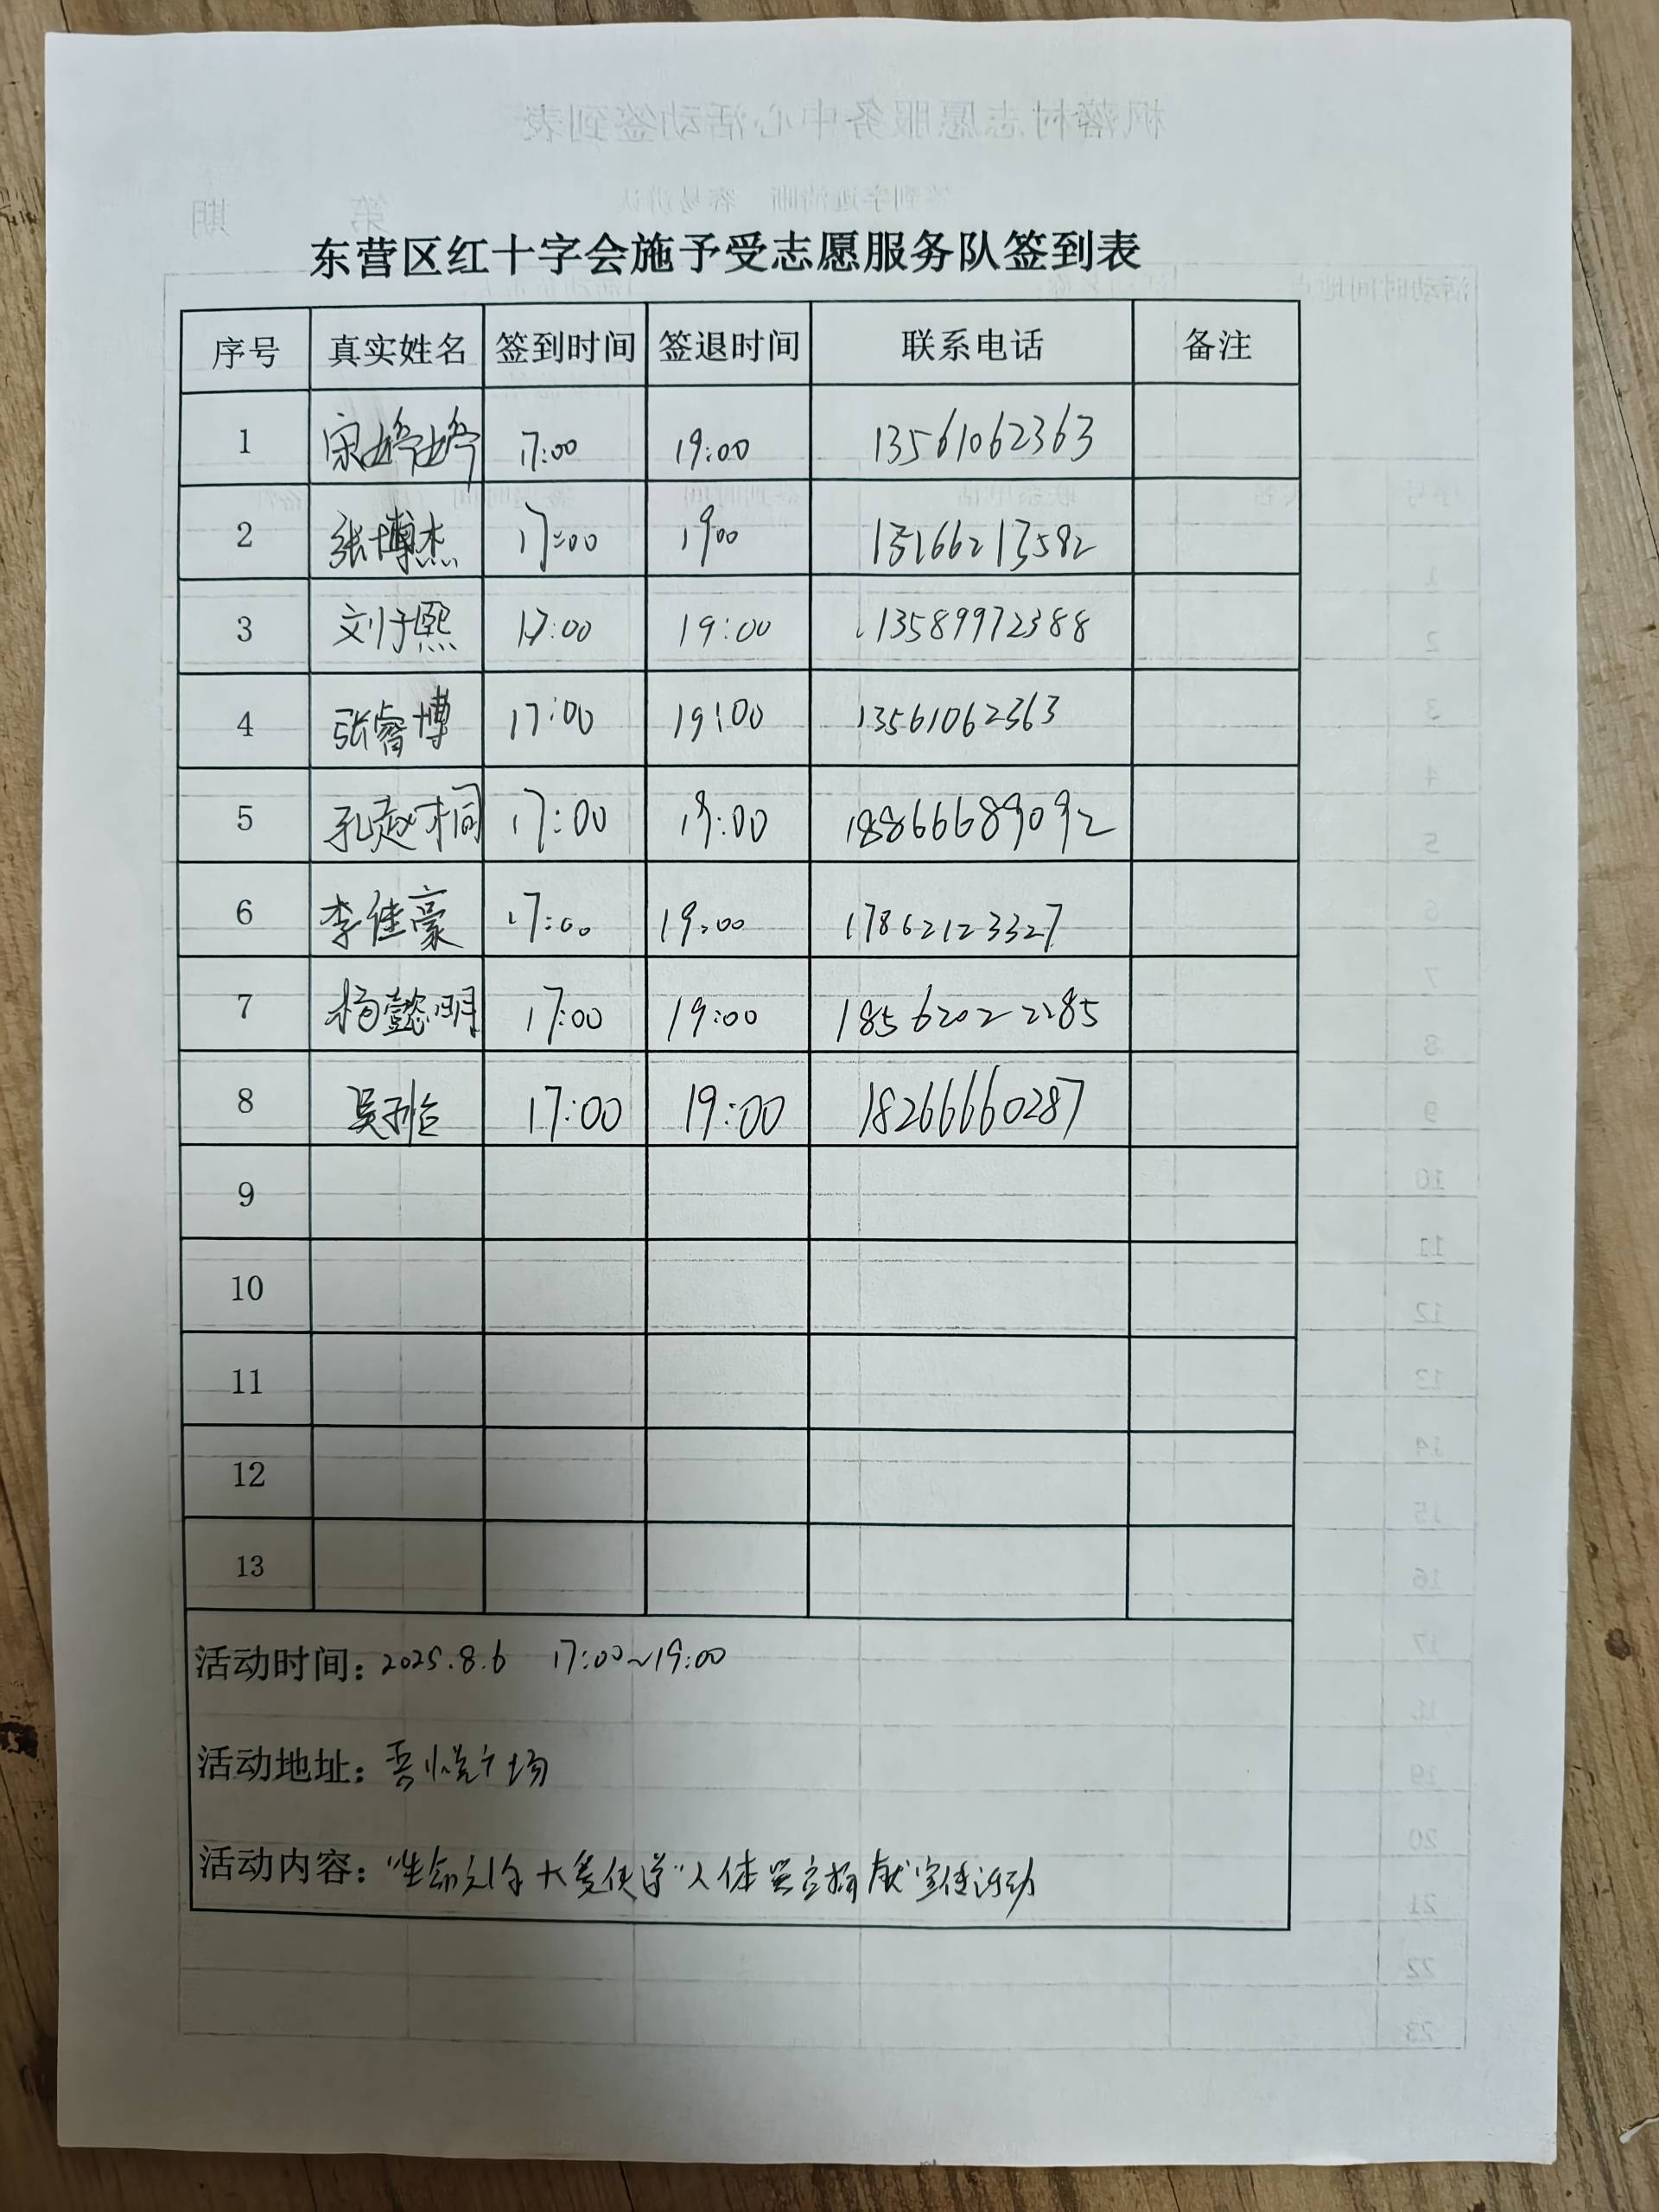 东营区红十字会施予受志愿服务队签到表
序号 真实姓名 签到时间 签退时间 联系电话 备注
1 宋婷婷 17:00 19:00 13561062363
2 张博杰 17:00 1900 13166213582
3 刘子熙 17:00 19:00 13589972388
4 张睿博 17:00 19:00 13561062363
5 孔赵桐 17:00 19:00 18866689092
6 李佳豪 17:00 19:00 17862123327
7 杨懿明 17:00 19:00 18562022285
8 吴 17:00 19:00 18266660287
9
10
11
12
13
活动时间:2025.8.6 17:00~19:00
活动地址:吾悦广场
活动内容:"生命 大爱 "人体器官捐献宣传活动